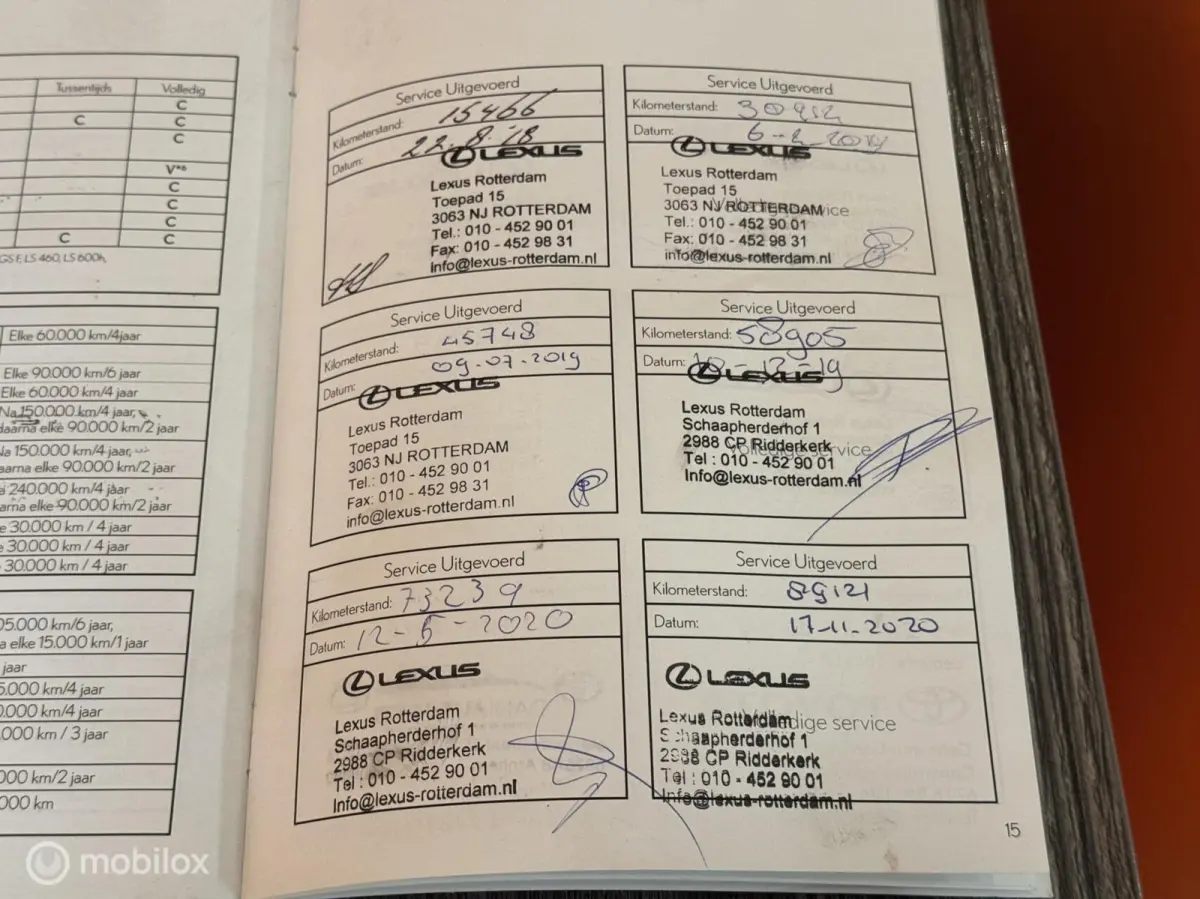 Tussentijds Volledig
C
C C
C
V*⁶
C
C
C
C C
GS F, LS 460, LS 600h,
Elke 60.000 km/4jaar
Elke 90.000 km/6 jaar
Elke 60.000 km/4 jaar
Na 150.000 km/4 jaar,
daarna elke 90.000 km/2 jaar
Na 150.000 km/4 jaar,
aarna elke 90.000 km/2 jaar
240.000 km/4 jaar
arna elke 90.000 km/2 jaar
e 30.000 km / 4 jaar
e 30.000 km / 4 jaar
30.000 km / 4 jaar
05.000 km/6 jaar,
a elke 15.000 km/1 jaar
jaar
5.000 km/4 jaar
0.000 km/4 jaar
.000 km / 3 jaar
000 km/2 jaar
000 km
Service Uitgevoerd
Kilometerstand: 15466
Datum: 22.8.'18
LEXUS
Lexus Rotterdam
Toepad 15
3063 NJ ROTTERDAM
Tel.: 010 - 452 90 01
Fax: 010 - 452 98 31
info@lexus-rotterdam.nl
Service Uitgevoerd
Kilometerstand:
Datum:
LEXUS
Lexus Rotterdam
Toepad 15
3063 NJ ROTTERDAM
Volledige service
Tel.: 010 - 452 90 01
Fax: 010 - 452 98 31
info@lexus-rotterdam.nl
Service Uitgevoerd
Kilometerstand: 45748
Datum: 09.07.2019
LEXUS
Lexus Rotterdam
Toepad 15
3063 NJ ROTTERDAM
Tel.: 010 - 452 90 01
Fax: 010 - 452 98 31
info@lexus-rotterdam.nl
Service Uitgevoerd
Kilometerstand: 58905
Datum:
LEXUS
Lexus Rotterdam
Schaapherderhof 1
2988 CP Ridderkerk
Volledige service
Tel : 010 - 452 90 01
Info@lexus-rotterdam.nl
Service Uitgevoerd
Kilometerstand: 73239
Datum: 12-5-2020
LEXUS
Lexus Rotterdam
Schaapherderhof 1
2988 CP Ridderkerk
Tel : 010 - 452 90 01
Info@lexus-rotterdam.nl
Service Uitgevoerd
Kilometerstand: 89121
Datum: 17-11-2020
LEXUS
Lexus Rotterdam
Volledige service
Schaapherderhof 1
2988 CP Ridderkerk
Tel : 010 - 452 90 01
Info@lexus-rotterdam.nl
15
mobilox